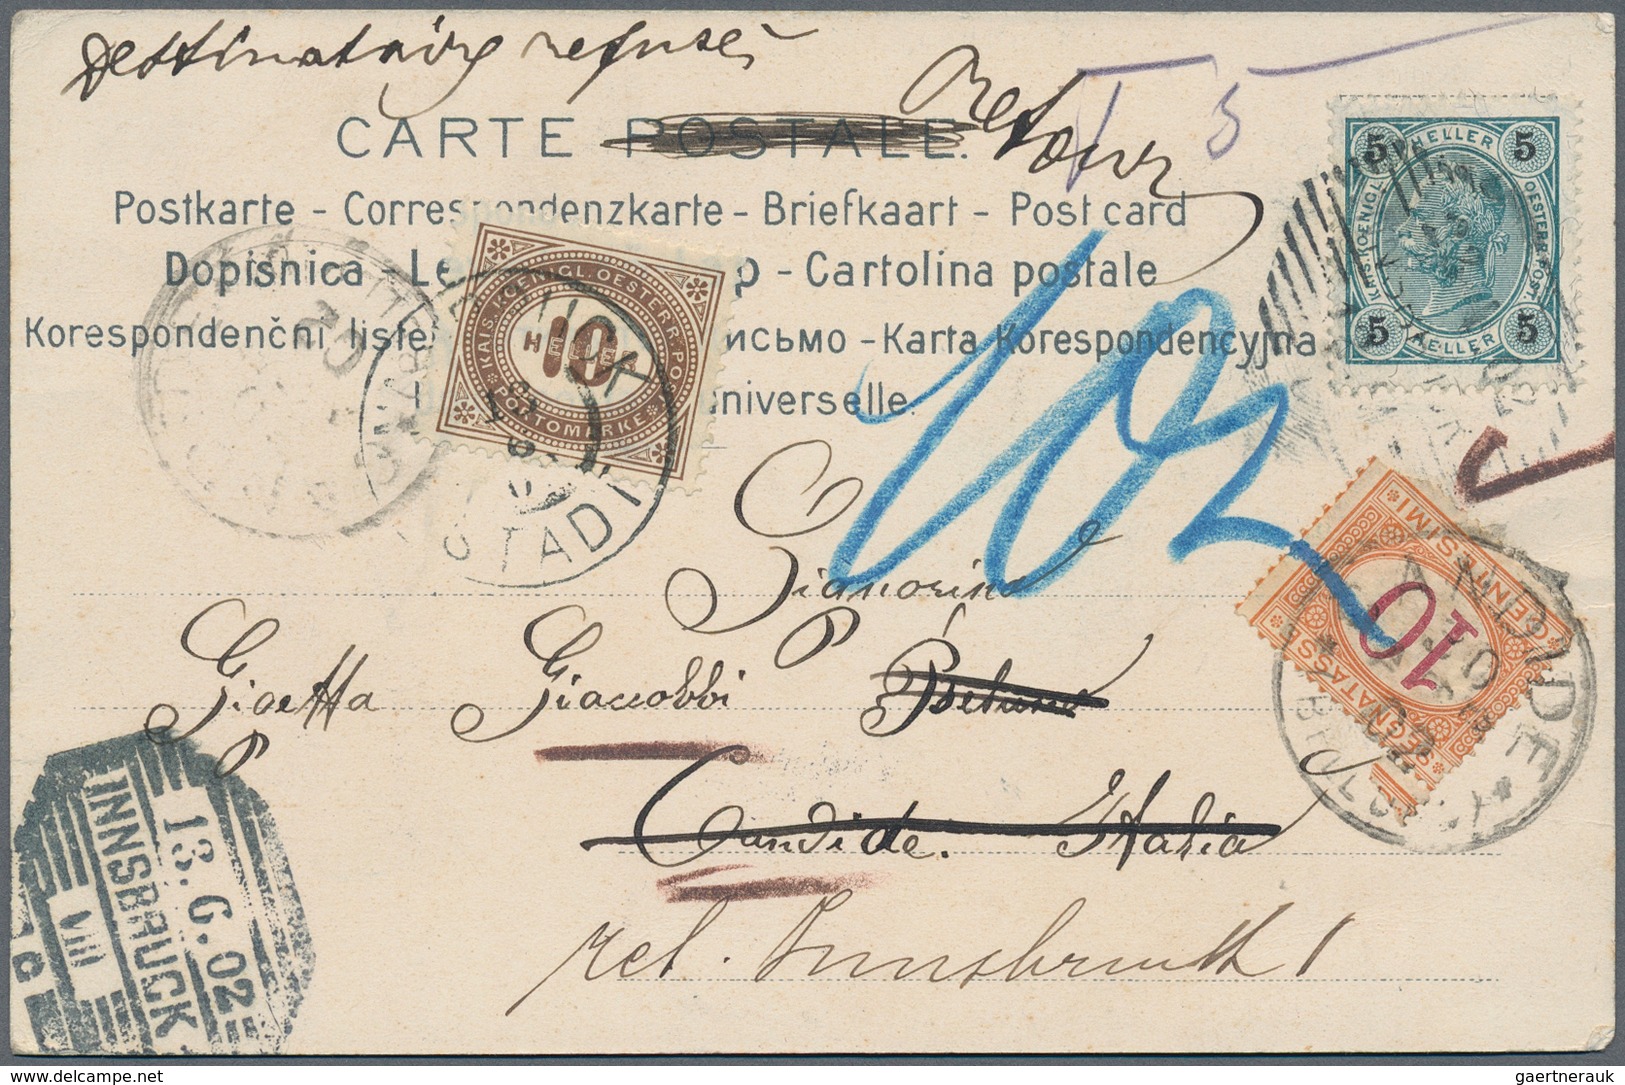 Destinataire refusé
Retour
T 5
CARTE POSTALE.
Postkarte - Correspondenzkarte - Briefkaart - Post card
Dopisnica - Le p - Cartolina postale
Korespondenční liste исьмо - Karta Korespondencyjna
niverselle.
5 HELLER 5
KAIS. KOENIGL. OESTERR. POST.
5 HELLER 5
KAIS. KOENIGL. OESTERR. PO
10
HELLER
PORTOMARKE
STADT
102
10
SEGNATASSE
CENTESIMI
Signorina
Gioetta Giacobbi
Candide. Italia
ret. Innsbruck 1
13.6.02
INNSBRUCK
VIII
CANDIDE
BELLUNO
gaertnerauk